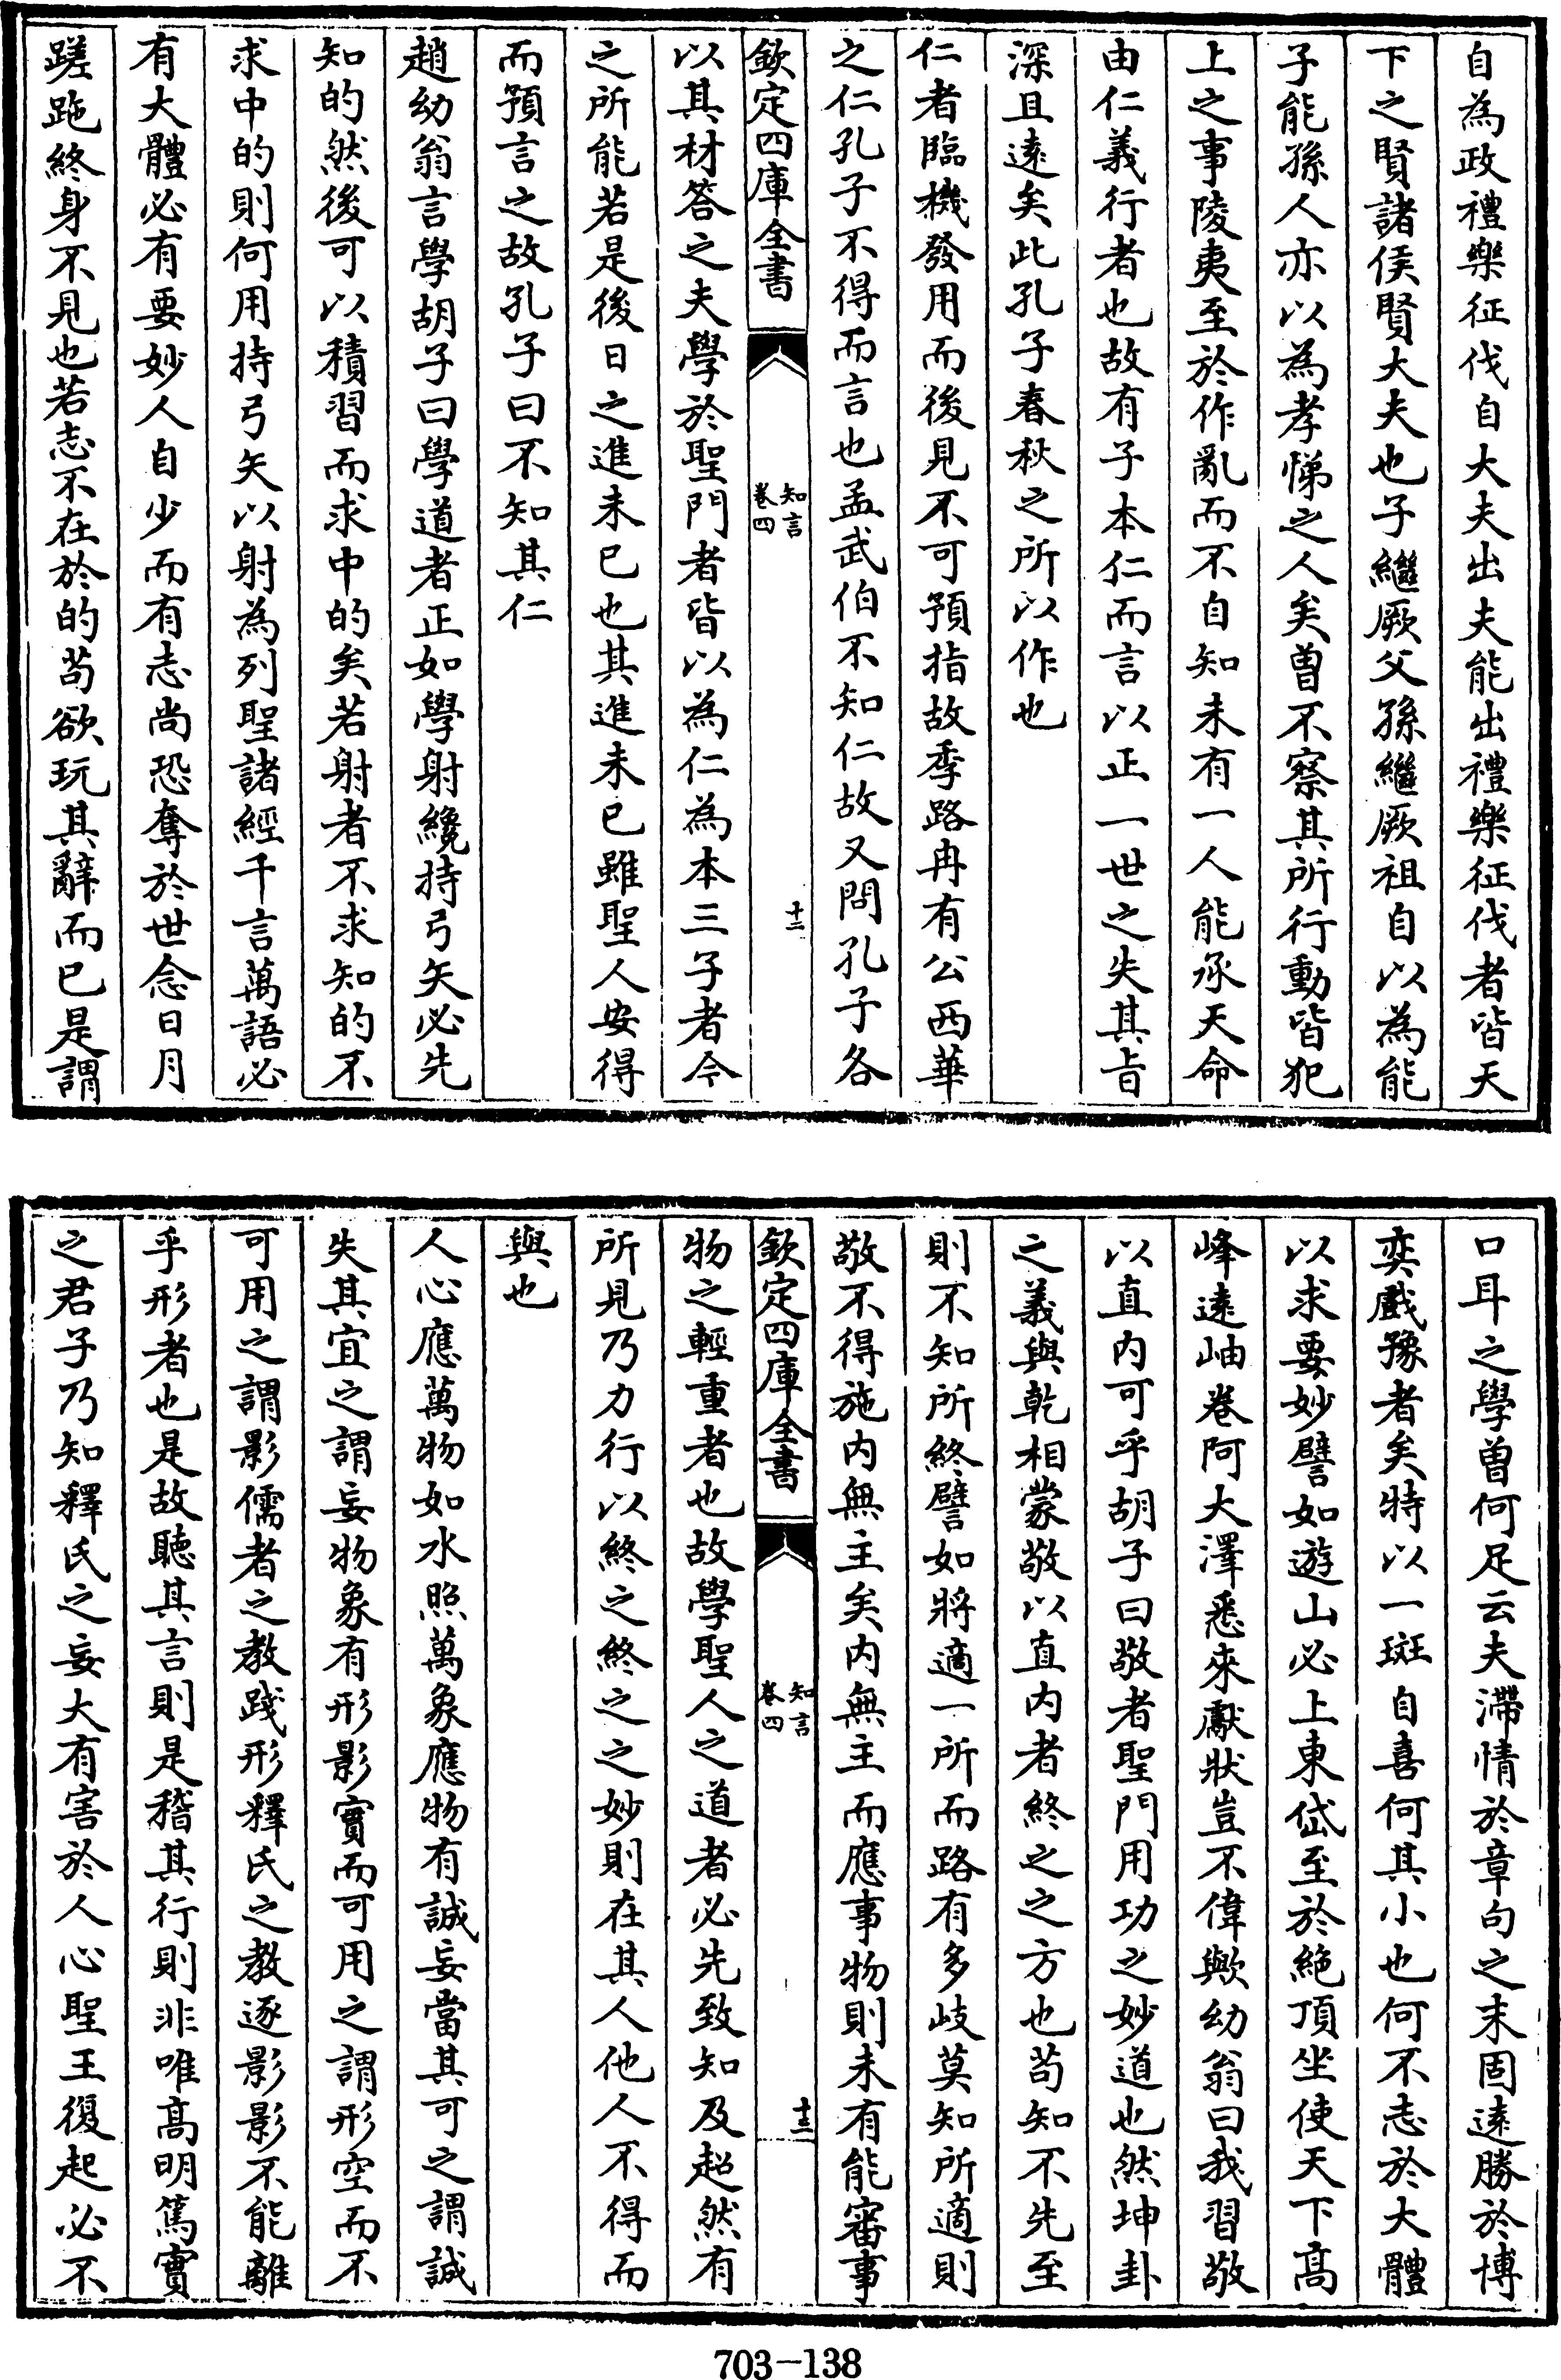 自為政禮樂征伐自大夫出夫能出禮樂征伐者皆天
下之賢諸侯賢大夫也子繼厥父孫繼厥祖自以為能
子能孫人亦以為孝悌之人矣曽不察其所行動皆犯
上之事陵夷至於作亂而不自知未有一人能承天命
由仁義行者也故有子本仁而言以正一世之失其旨
深且遠矣此孔子春秋之所以作也
仁者臨機發用而後見不可預指故季路冉有公西華
之仁孔子不得而言也孟武伯不知仁故又問孔子各
欽定四庫全書
知言
卷四
十二
以其材答之夫學於聖門者皆以為仁為本三子者今
之所能若是後日之進未已也其進未已雖聖人安得
而預言之故孔子曰不知其仁
趙幼翁言學胡子曰學道者正如學射纔持弓矢必先
知的然後可以積習而求中的矣若射者不求知的不
求中的則何用持弓矢以射為列聖諸經千言萬語必
有大體必有要妙人自少而有志尚恐奪於世念日月
蹉跎終身不見也若志不在於的苟欲玩其辭而已是謂
口耳之學曽何足云夫滯情於章句之末固遠勝於博
奕戲豫者矣特以一斑自喜何其小也何不志於大體
以求要妙譬如遊山必上東岱至於絶頂坐使天下高
峰遠岫卷阿大澤悉來獻狀豈不偉歟幼翁曰我習敬
以直内可乎胡子曰敬者聖門用功之妙道也然坤卦
之義與乾相蒙敬以直内者終之之方也苟知不先至
則不知所終譬如將適一所而路有多岐莫知所適則
敬不得施内無主矣内無主而應事物則未有能審事
欽定四庫全書
知言
卷四
十三
物之輕重者也故學聖人之道者必先致知及超然有
所見乃力行以終之終之之妙則在其人他人不得而
與也
人心應萬物如水照萬象應物有誠妄當其可之謂誠
失其宜之謂妄物象有形影實而可用之謂形空而不
可用之謂影儒者之教踐形釋氏之教逐影影不能離
乎形者也是故聽其言則是稽其行則非唯高明篤實
之君子乃知釋氏之妄大有害於人心聖王復起必不
703-138